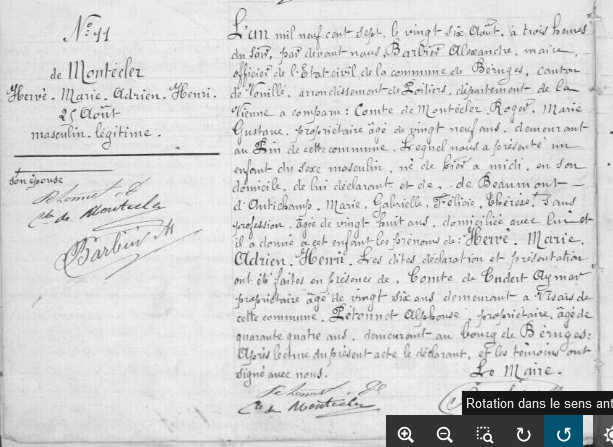 N° 41
de Montécler
Hervé. Marie. Adrien. Henri.
25 Août
masculin. légitime.
son épouse
Cte de Montecler
Barbier A
L'an mil neuf cent sept, le vingt six Août, à trois heures
du soir, par devant nous, Barbier Alexandre, maire,
officier de l'Etat civil de la commune de Béruges, canton
de Vouillé, arrondissement de Poitiers, département de la
Vienne a comparu: Comte de Montécler Roger, Marie
Gustave, propriétaire âgé de vingt neuf ans, demeurant
au Pin de cette commune. Lequel nous a présenté un
enfant du sexe masculin, né de hier à midi, en son
domicile, de lui déclarant et de. de Beaumont –
d'Autichamp. Marie, Gabrielle, Félicie, Thérèse, sans
profession, âgée de vingt huit ans, domiciliée avec lui et
il a donné à cet enfant les prénoms de: Hervé. Marie.
Adrien. Henri. Les dites déclaration et présentation
ont été faites en présence de. Comte de Aymar
propriétaire âgé de vingt six ans demeurant à
cette commune. Alphonse, propriétaire, âgé de
quarante quatre ans, demeurant au bourg de Béruges:
Après lecture du présent acte le déclarant, et les témoins ont
signé avec nous.
Le Maire.
Cte de Montecler
Rotation dans le sens ant